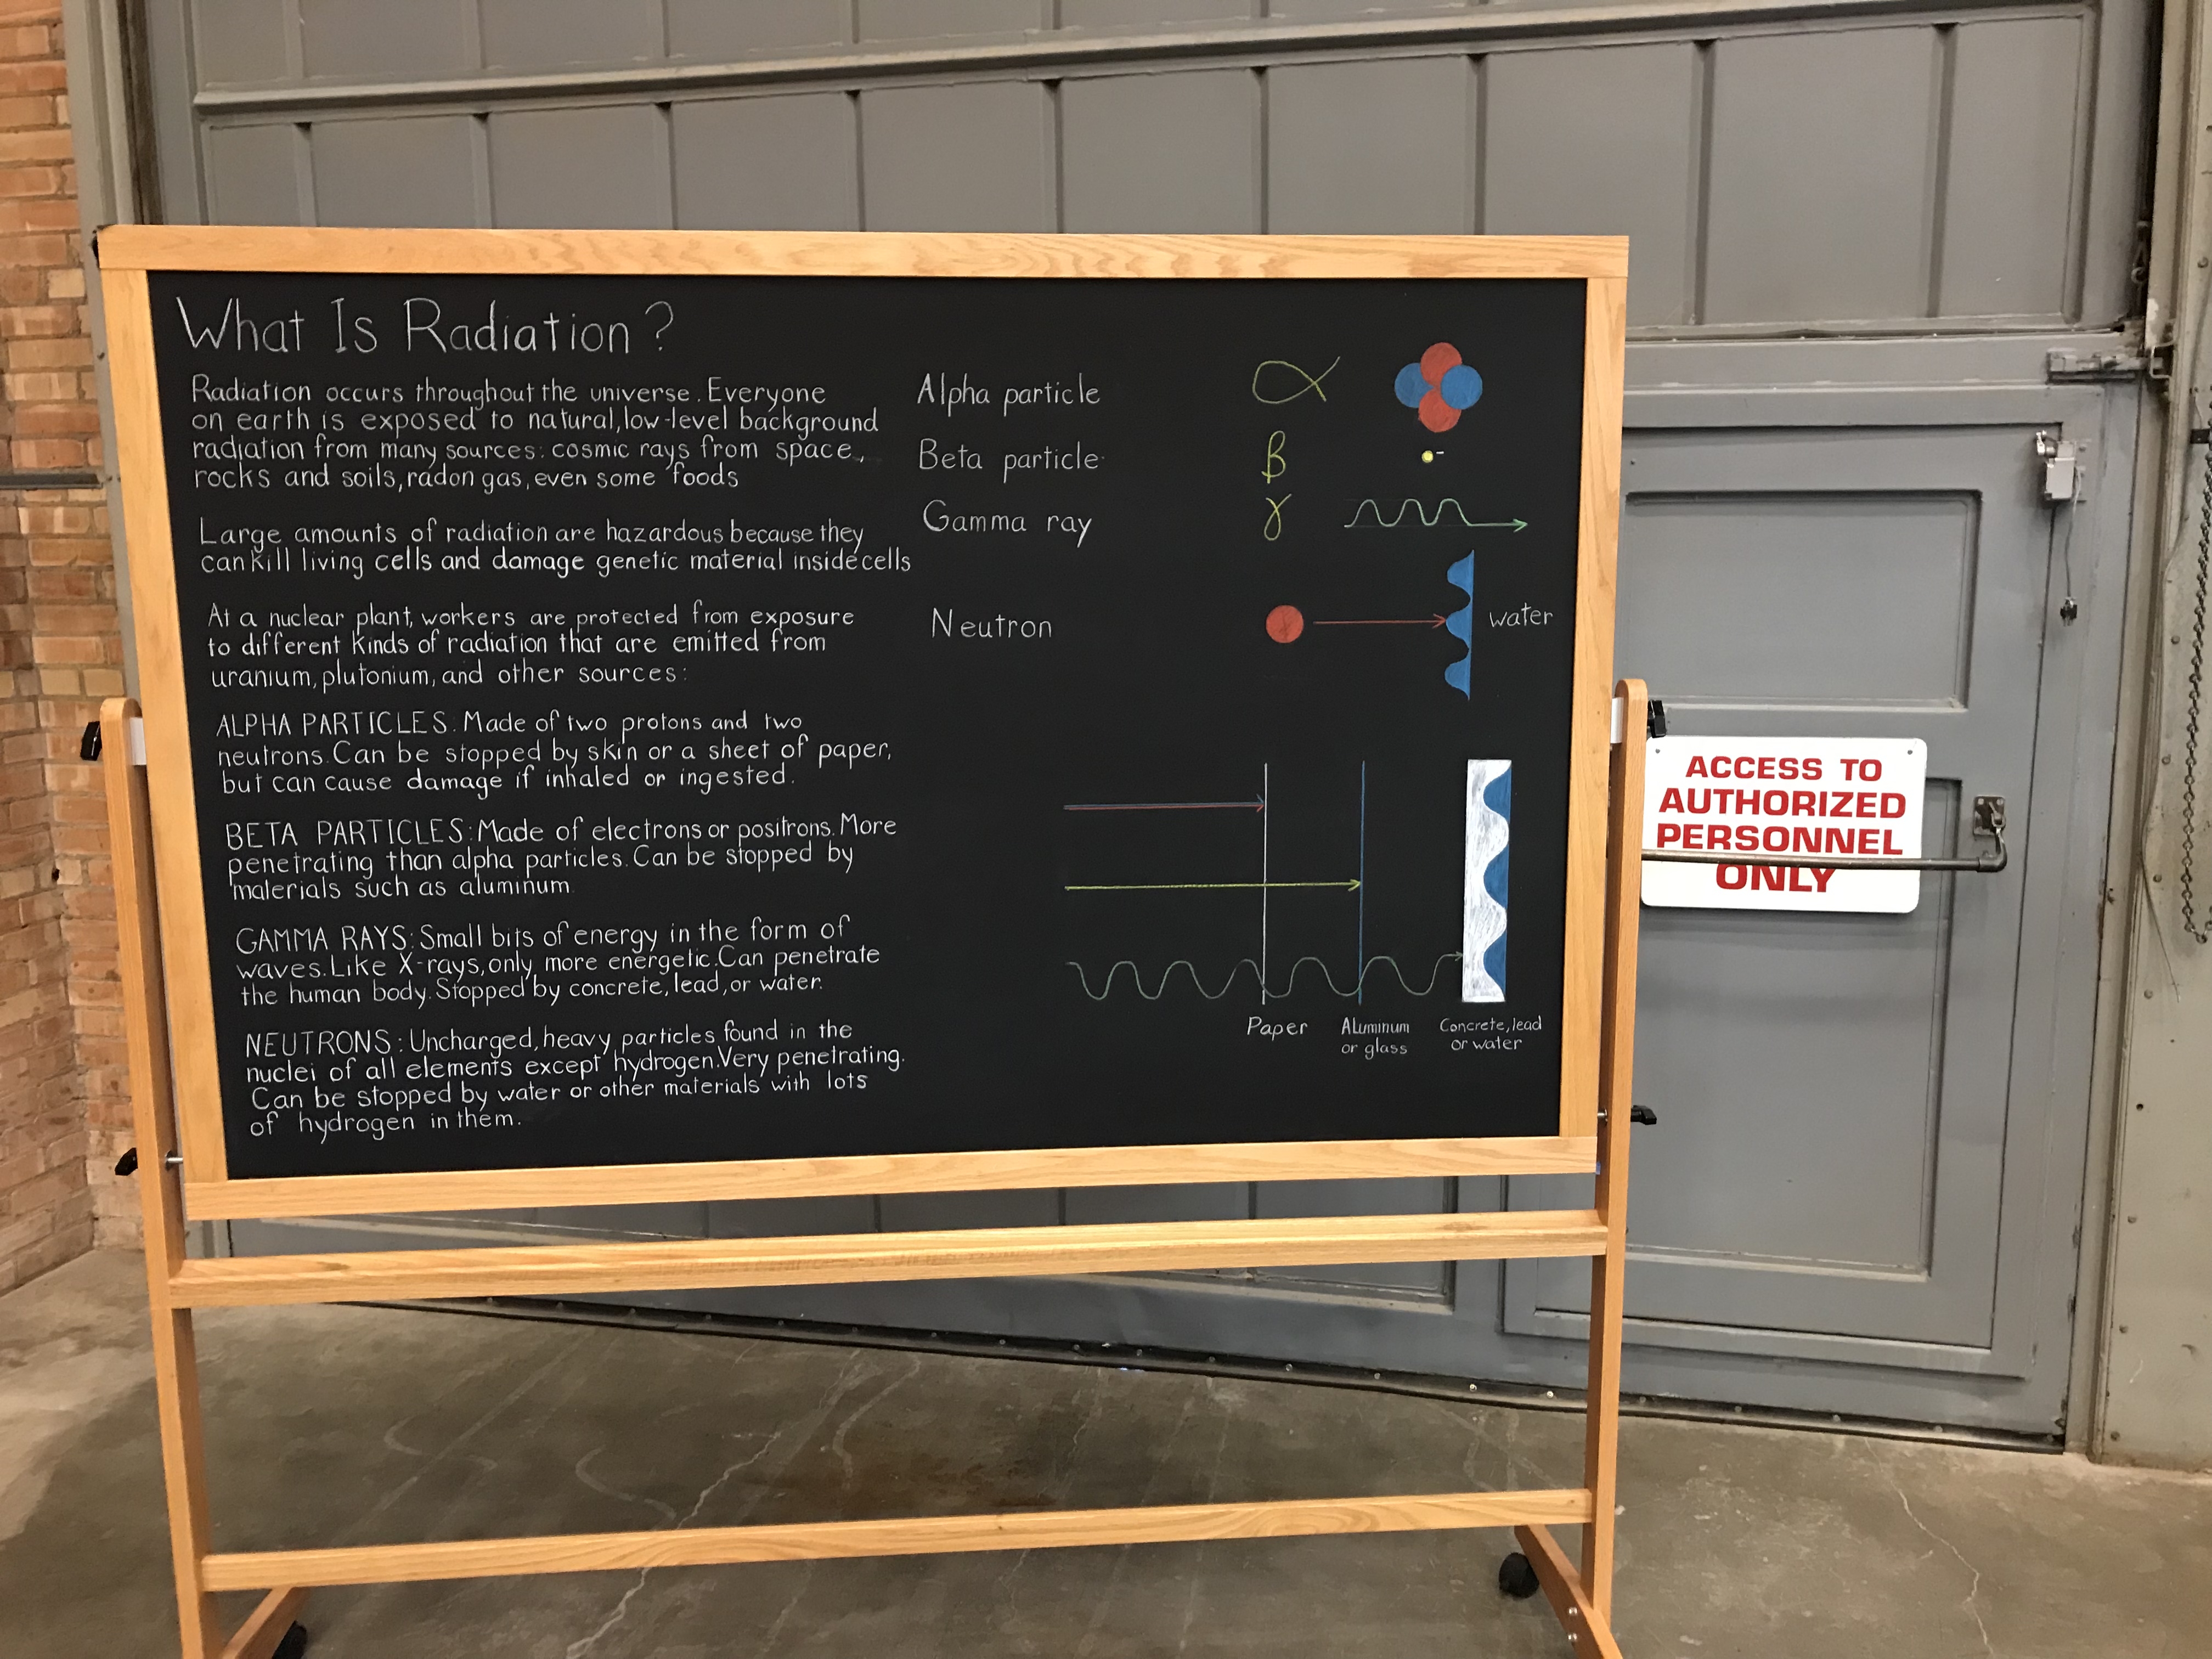 What Is Radiation?
Radiation occurs throughout the universe. Everyone
on earth is exposed to natural, low-level background
radiation from many sources: cosmic rays from space,
rocks and soils, radon gas, even some foods
Large amounts of radiation are hazardous because they
can kill living cells and damage genetic material inside cells
At a nuclear plant, workers are protected from exposure
to different kinds of radiation that are emitted from
uranium, plutonium, and other sources:
ALPHA PARTICLES: Made of two protons and two
neutrons. Can be stopped by skin or a sheet of paper,
but can cause damage if inhaled or ingested.
BETA PARTICLES: Made of electrons or positrons. More
penetrating than alpha particles. Can be stopped by
materials such as aluminum
GAMMA RAYS: Small bits of energy in the form of
waves. Like X-rays, only more energetic. Can penetrate
the human body. Stopped by concrete, lead, or water.
NEUTRONS: Uncharged, heavy particles found in the
nuclei of all elements except hydrogen. Very penetrating.
Can be stopped by water or other materials with lots
of hydrogen in them.
Alpha particle α
Beta particle β -
Gamma ray γ
Neutron water
Paper
Aluminum
or glass
Concrete, lead
or water
ACCESS TO
AUTHORIZED
PERSONNEL
ONLY